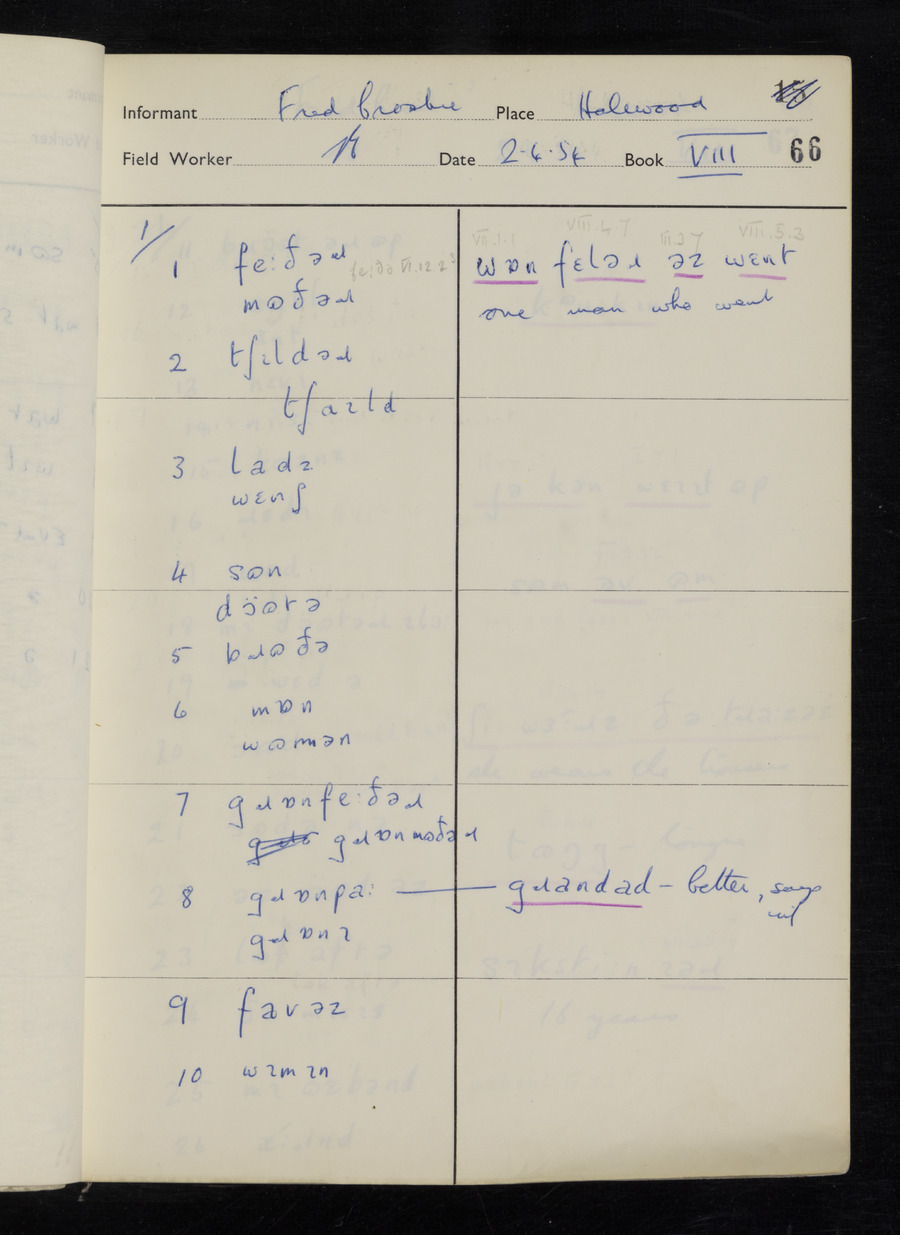 Informant Fred Crosbie Place Halewood
Field Worker Date 2.4.54 Book VIII 66
1/
1 fe:ðəɹ fe:ðə VI.12.2
mɷðəɹ
2 tʃɪldəɹ
tʃaɪld
3 ladz
wɛnʃ
4 sɷn
dɔ̈ɷtə
5 bɹɷðə
6 mɒn
wɷmən
7 gɹɒnfe:ðəɹ
gɹɒnmɷðəɹ
8 gɹɒnpa:
gɹɒnɪ
9 favəz
10 wɪmɪn
VII.1.1 VIII.4.7 III.3.7 VIII.5.3
wɒn fɛləɹ əz wɛnt
one man who went
gɹandad – better, says inf